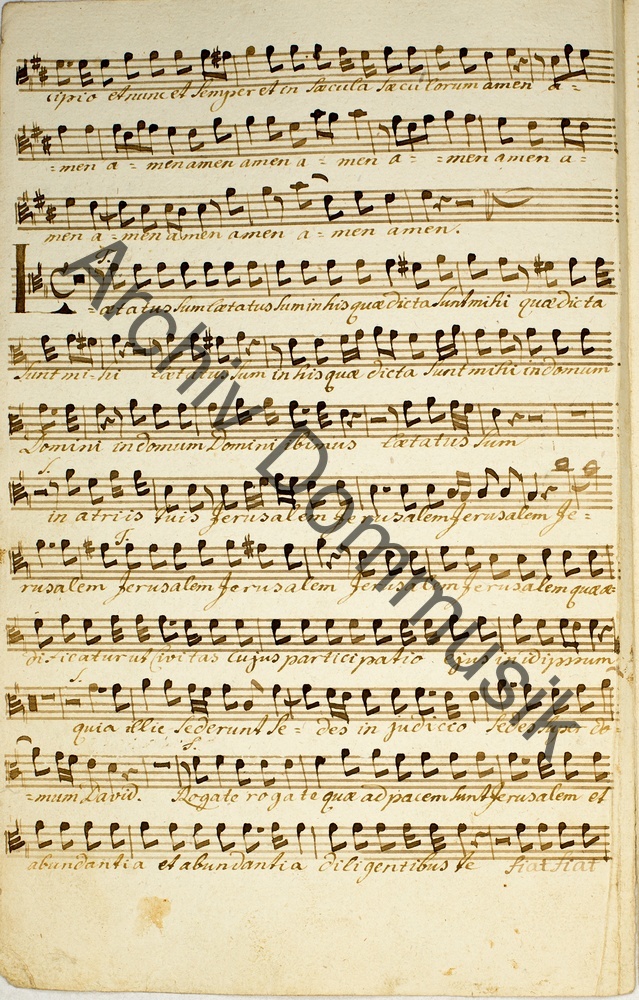 cipio et nunc et semper et in sæcula sæculorum amen a-
-men a-men amen amen a-men a-men amen a-
men a-men amen amen a-men amen.
Lætatus sum lætatus sum in his quæ dicta sunt mihi quæ dicta
sunt mi-hi lætatus sum in his quæ dicta sunt mihi in domum
Domini in domum Domini ibimus lætatus sum
in atriis tuis Jerusalem Jerusalem Jerusalem Je-
rusalem Jerusalem Jerusalem Jerusalem Jerusalem quæ æ-
dificatur ut Civitas cujus participatio ejus in idipsum
quia illic sederunt se-des in judicio sedes super do-
-mum David. Rogate rogate quæ ad pacem sunt Jerusalem et
abundantia et abundantia diligentibus te fiat fiat
Archiv Dommusik